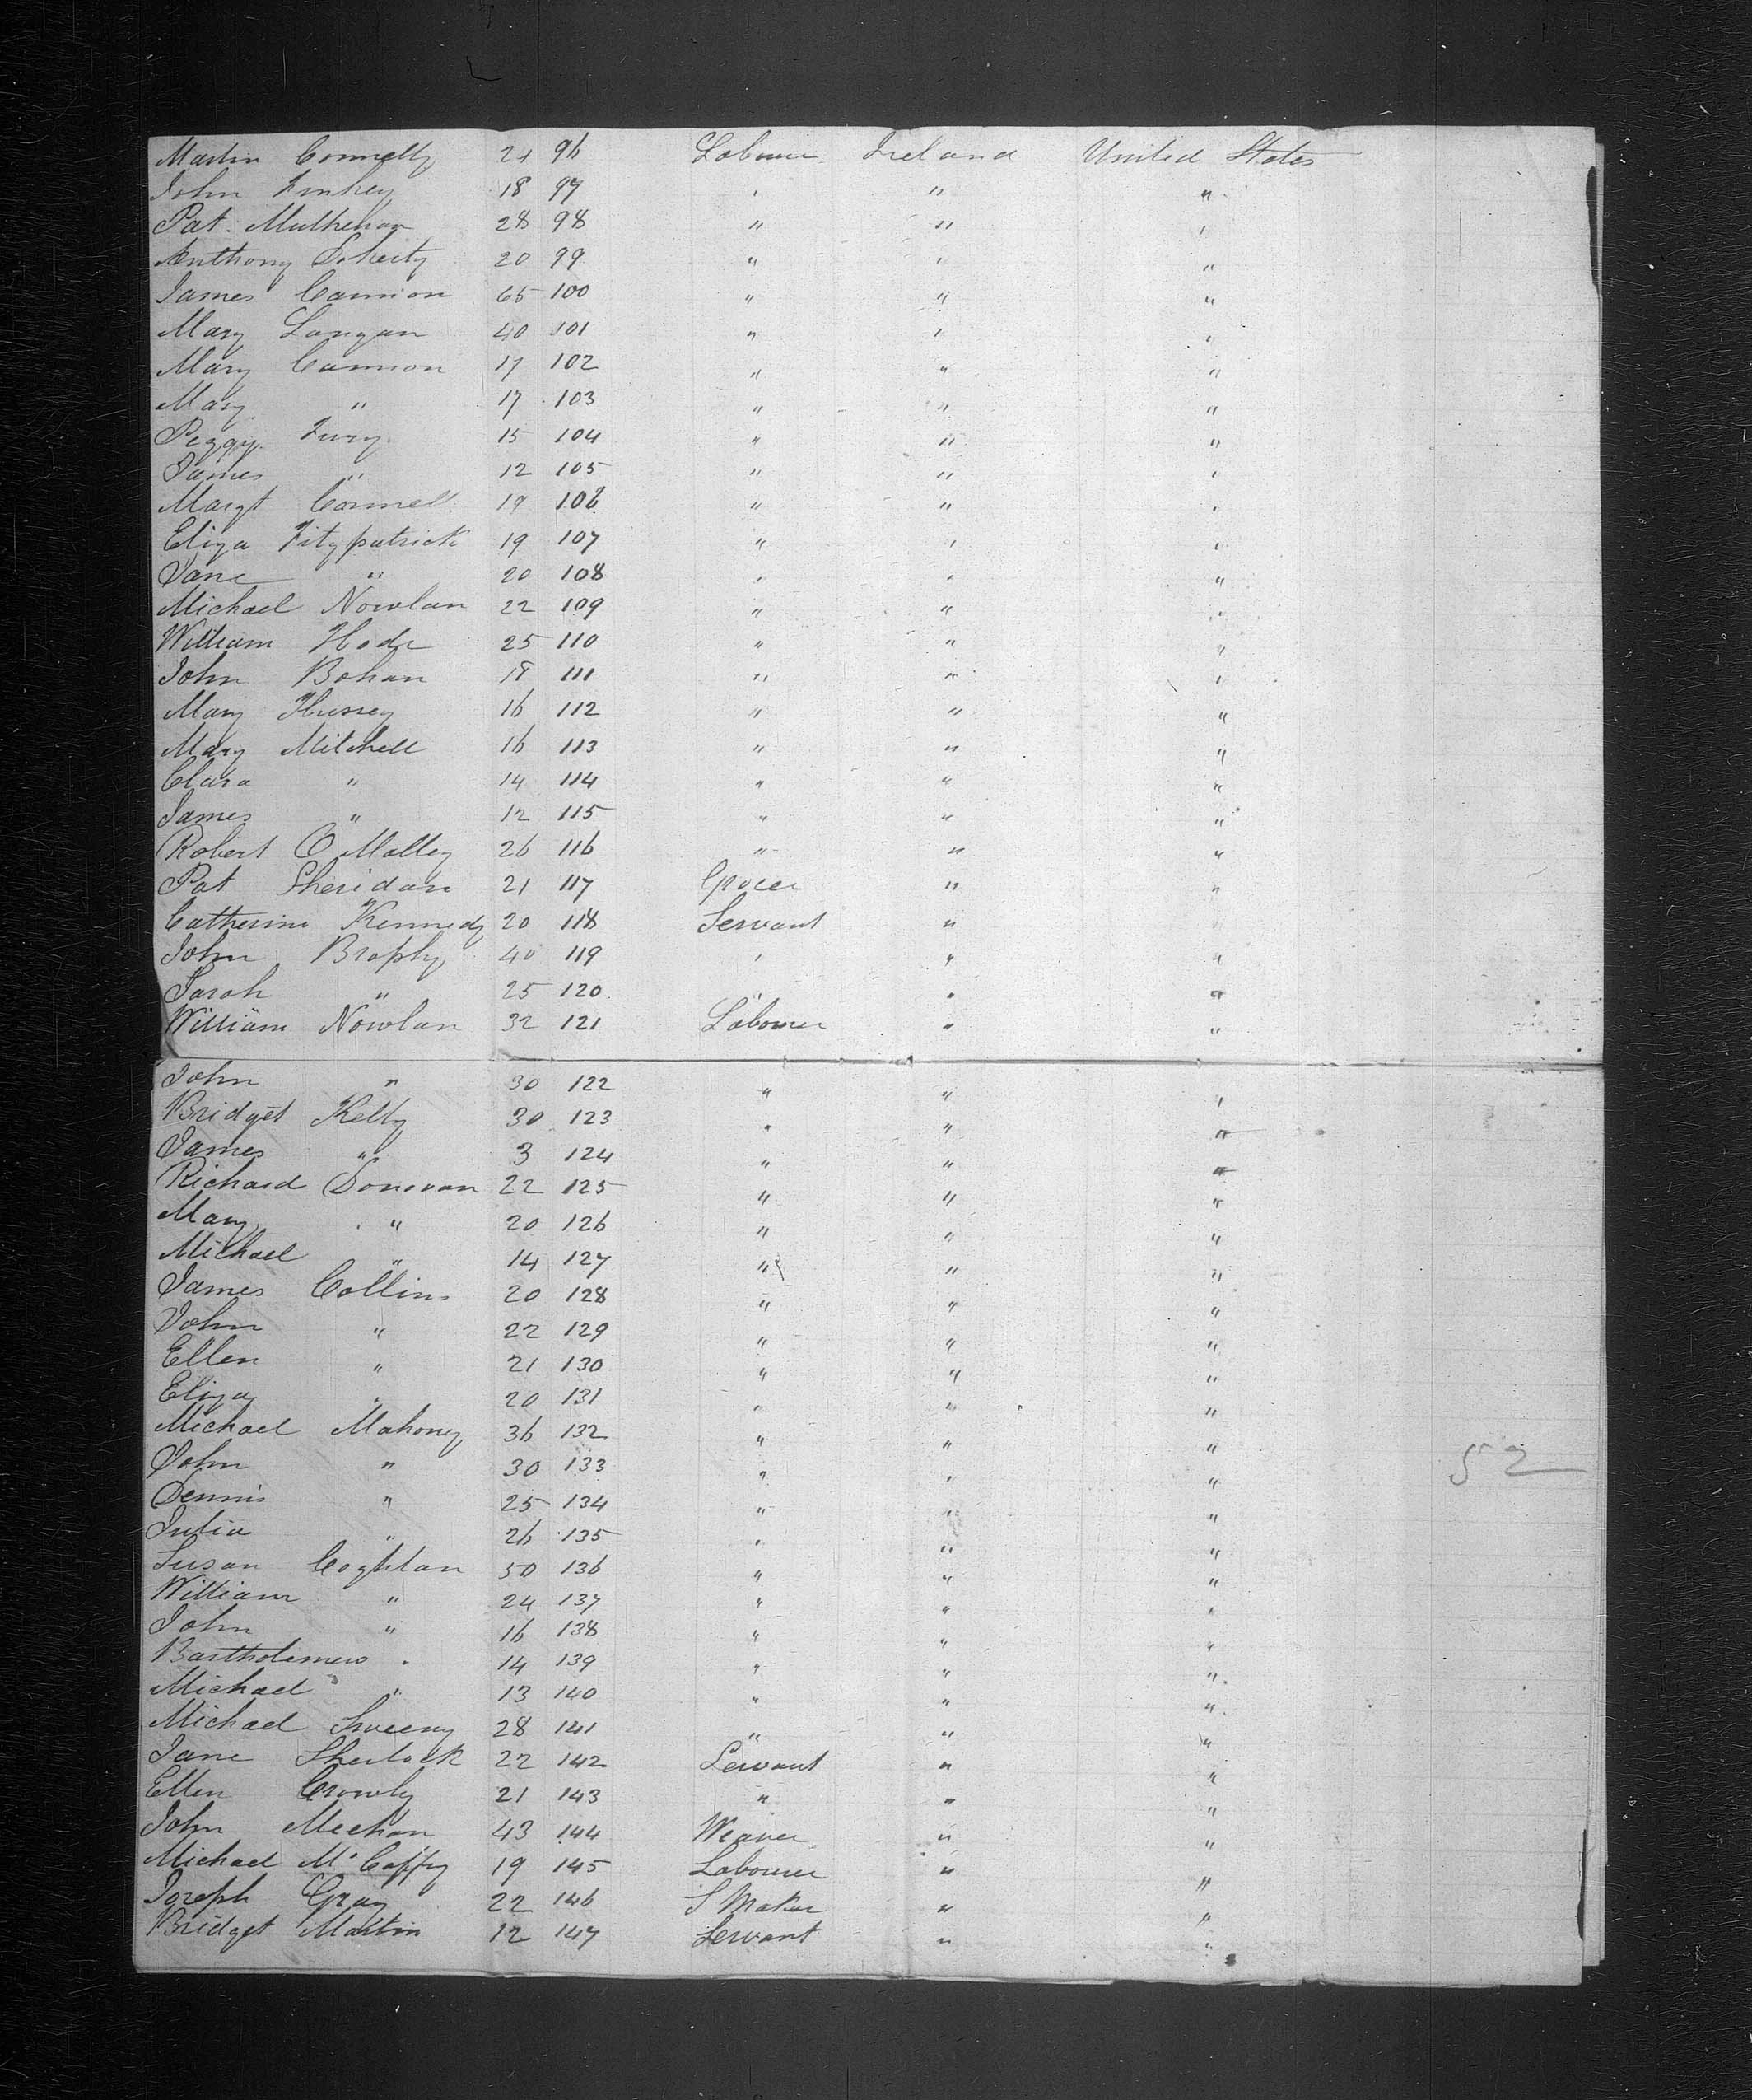 Martin Connelly 21 96 Labourer Ireland United States
John 18 97 " " "
Pat. Mulhehan 28 98 " " "
Anthony Doherty 20 99 " " "
James Cannion 65 100 " " "
Mary Langan 40 101 " " "
Mary Cannion 17 102 " " "
Mary " 17 103 " " "
Peggy 15 104 " " "
James " 12 105 " " "
Margt Connell 19 106 " " "
Eliza Fitzpatrick 19 107 " " "
Jane " 20 108 " " "
Michael Nowlan 22 109 " " "
William 25 110 " " "
John Bohan 18 111 " " "
Mary Hussey 16 112 " " "
Mary Mitchell 16 113 " " "
Clara " 14 114 " " "
James " 12 115 " " "
Robert O Malley 26 116 " " "
Pat Sheridan 21 117 Grocer " "
Catherine Kennedy 20 118 Servant " "
John Brophy 40 119 " " "
Sarah " 25 120 " " "
William Nowlan 32 121 Labourer " "
John " 30 122 " " "
Bridget Kelly 30 123 " " "
James " 3 124 " " "
Richard Donovan 22 125 " " "
Mary " 20 126 " " "
Michael " 14 127 " " "
James Collins 20 128 " " "
John " 22 129 " " "
Ellen " 21 130 " " "
Eliza " 20 131 " " "
Michael Mahoney 36 132 " " "
John " 30 133 " " "
52
Dennis " 25 134 " " "
Julia " 26 135 " " "
Susan Coghlan 50 136 " " "
William " 24 137 " " "
John " 16 138 " " "
Bartholemew " 14 139 " " "
Michael " 13 140 " " "
Michael Sweeny 28 141 " " "
Jane Sherlock 22 142 Servant " "
Ellen Crowly 21 143 " " "
John Meehan 43 144 Weaver " "
Michael McCaffry 19 145 Labourer " "
Joseph Gray 22 146 S Maker " "
Bridget Martin 12 147 Servant " "